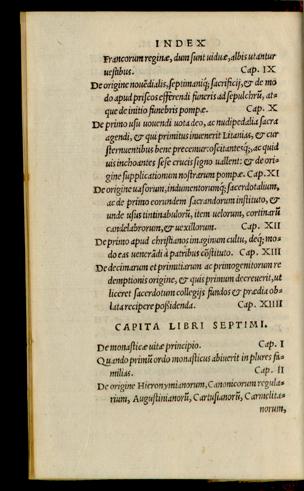 INDEX
Francorum reginæ, dum sunt uiduæ, albis utantur
uestibus. Cap. IX
De origine nouēdialis, septimaniq́; sacrificij, & de mo
do apud priscos efferendi funeris ad sepulchrū, at-
que de initio funebris pompæ. Cap. X
De primo usu uouendi uota deo, ac nudipedalia sacra
agendi, & qui primitus inuenerit Litanias, & cur
sternuentibus bene precemur: oscitantesq́;, ac quid
uis inchoantes sese crucis signo uallent: & de ori-
gine supplicationum nostrarum pompæ. Cap. XI
De origine uasorum, indumentorumq́; sacerdotalium,
ac de primo eorundem sacrandorum instituto, &
unde usus tintinabulorū, item uelorum, cortinarū
candelabrorum, & uexillorum. Cap. XII
De primo apud christianos imaginum cultu, deq́; mo-
do eas uenerādi à patribus cōstituto. Cap. XIII
De decimarum et primitiarum ac primogenitorum re
demptionis origine, & quis primum decreuerit, ut
liceret sacerdotum collegijs fundos & prædia ob-
lata recipere possidenda. Cap. XIIII
CAPITA LIBRI SEPTIMI.
De monasticæ uitæ principio. Cap. I
Quando primū ordo monasticus abiuerit in plures fa-
milias. Cap. II
De origine Hieronymianorum, Canonicorum regula-
rium, Augustinianorū, Cartusianorū, Carmelita-
norum,